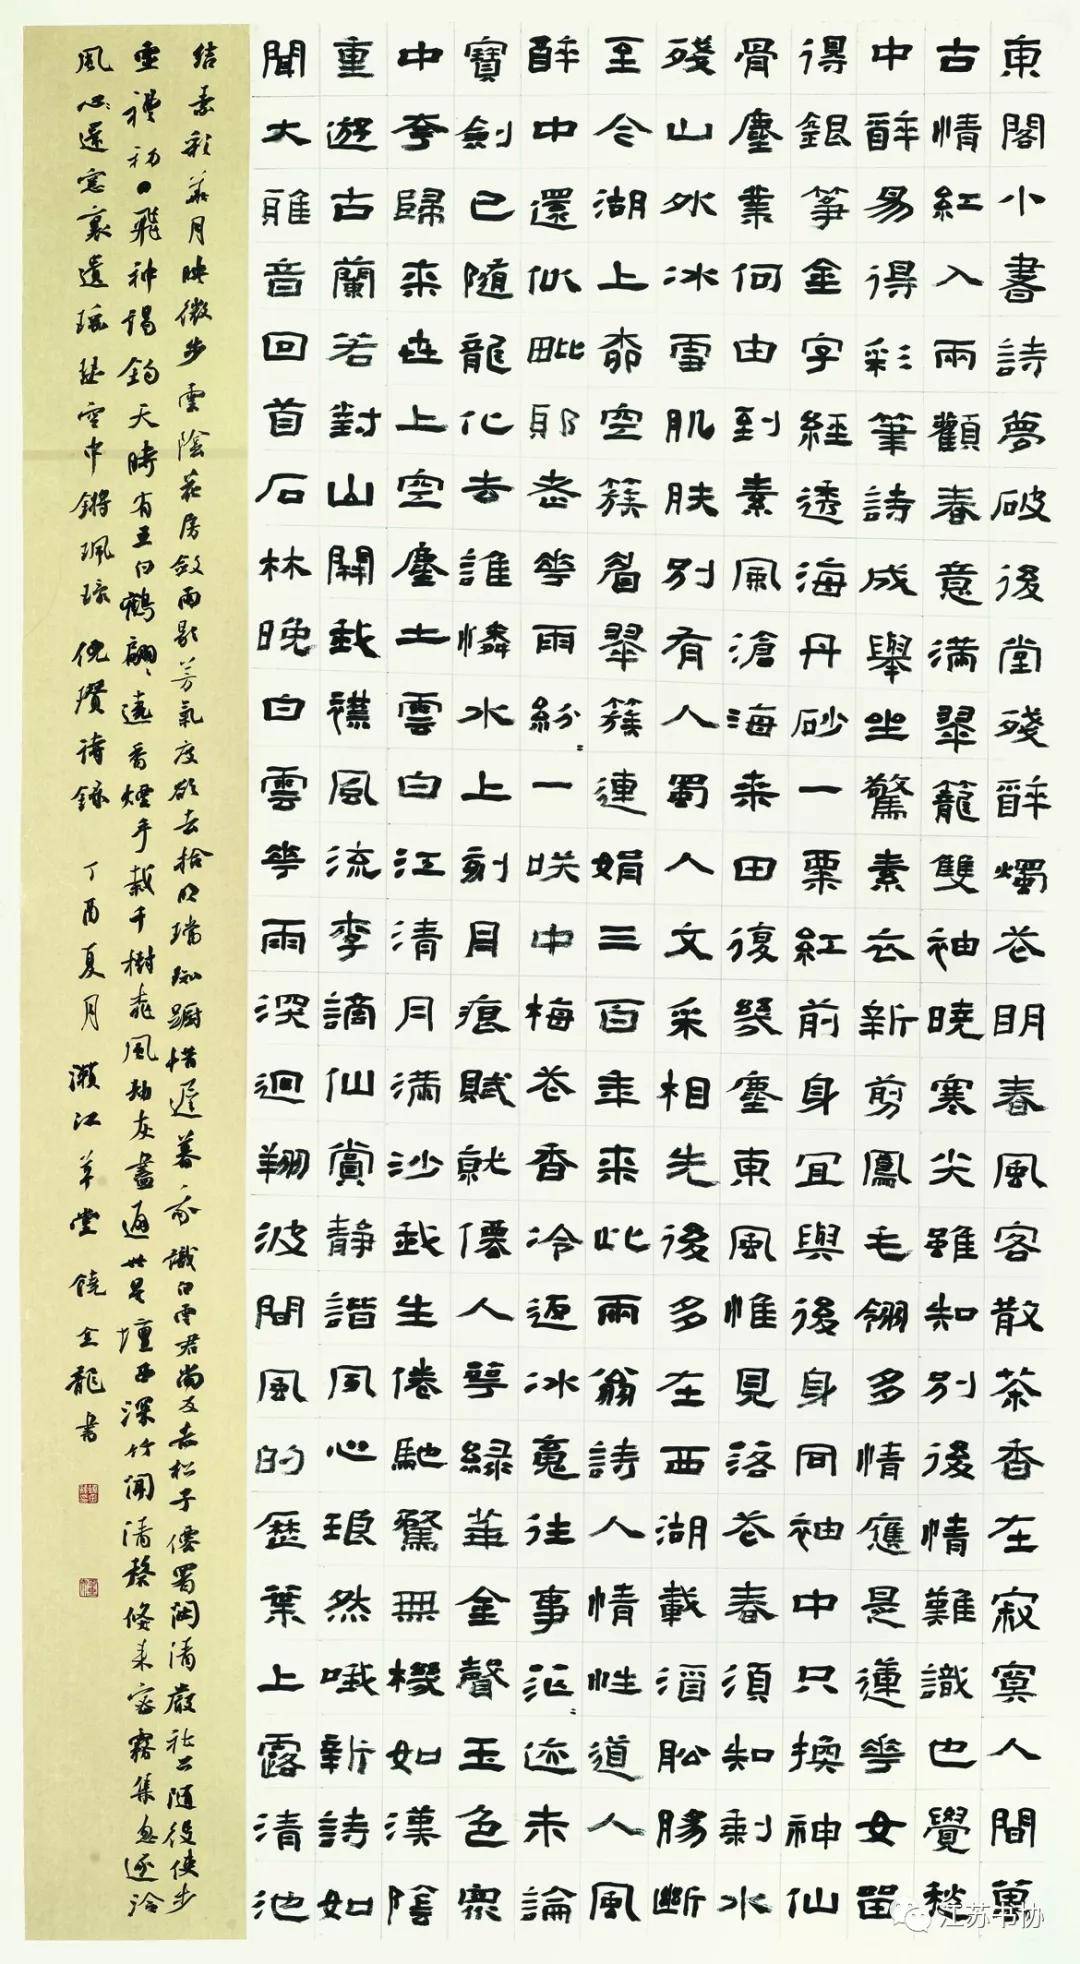 東閣小書詩夢破後堂殘醉燭花明春風客散茶香在寂寞人間萬
古情紅入兩顴春意滿翠籠雙袖曉寒尖雖知別後情難識也覺愁
中醉易得彩筆詩成舉坐驚素衣新剪鳳毛翎多情應是蓮華女留
得銀箏金字經透海丹砂一粟紅前身宜與後身同袖中只換神仙
骨塵業何由到素風滄海来田復幾塵東風惟見落花春須知剩水
殘山外冰雪肌膚別有人蜀人文采相先後多在西湖載酒船腸斷
至今湖上空簇眉翠簇連娟三百年来此兩翁詩人情性道人風
醉中還似毗耶老華雨紛〻一咲中梅花香冷返冰魂往事茫〻迹未論
寶劍已隨龍化去誰憐水上刻月痕賦就僊人萼綠華金聲玉色眾
中夸歸来世上空塵土雲白江清月滿沙我生倦馳騖無機如漢陰
重遊古蘭若對山開我襟風流李謫仙賞靜諧夙心琅然哦新詩如
聞大雅音回首石林晚白雲華雨深迴翔波間風的歷葉上露清池
結素彩華月映微步雲陰花房斂雨歇芳氣度欲去拾明璫踟躕惜遲暮我識白雲君尚友赤松子僊蜀閟清嚴社公隨役使步
虛禮初日飛神謁鈞天時有王白鶴翩〻遶香煙手栽千樹桃風劫灰盡適世星壇西深竹聞清磬倏来寒霧集忽逐泠
風心還窓裏遺瑤瑟空中鏘珮環倪瓚詩錄 丁酉夏月瀨江草堂饒金龍書
江苏书协